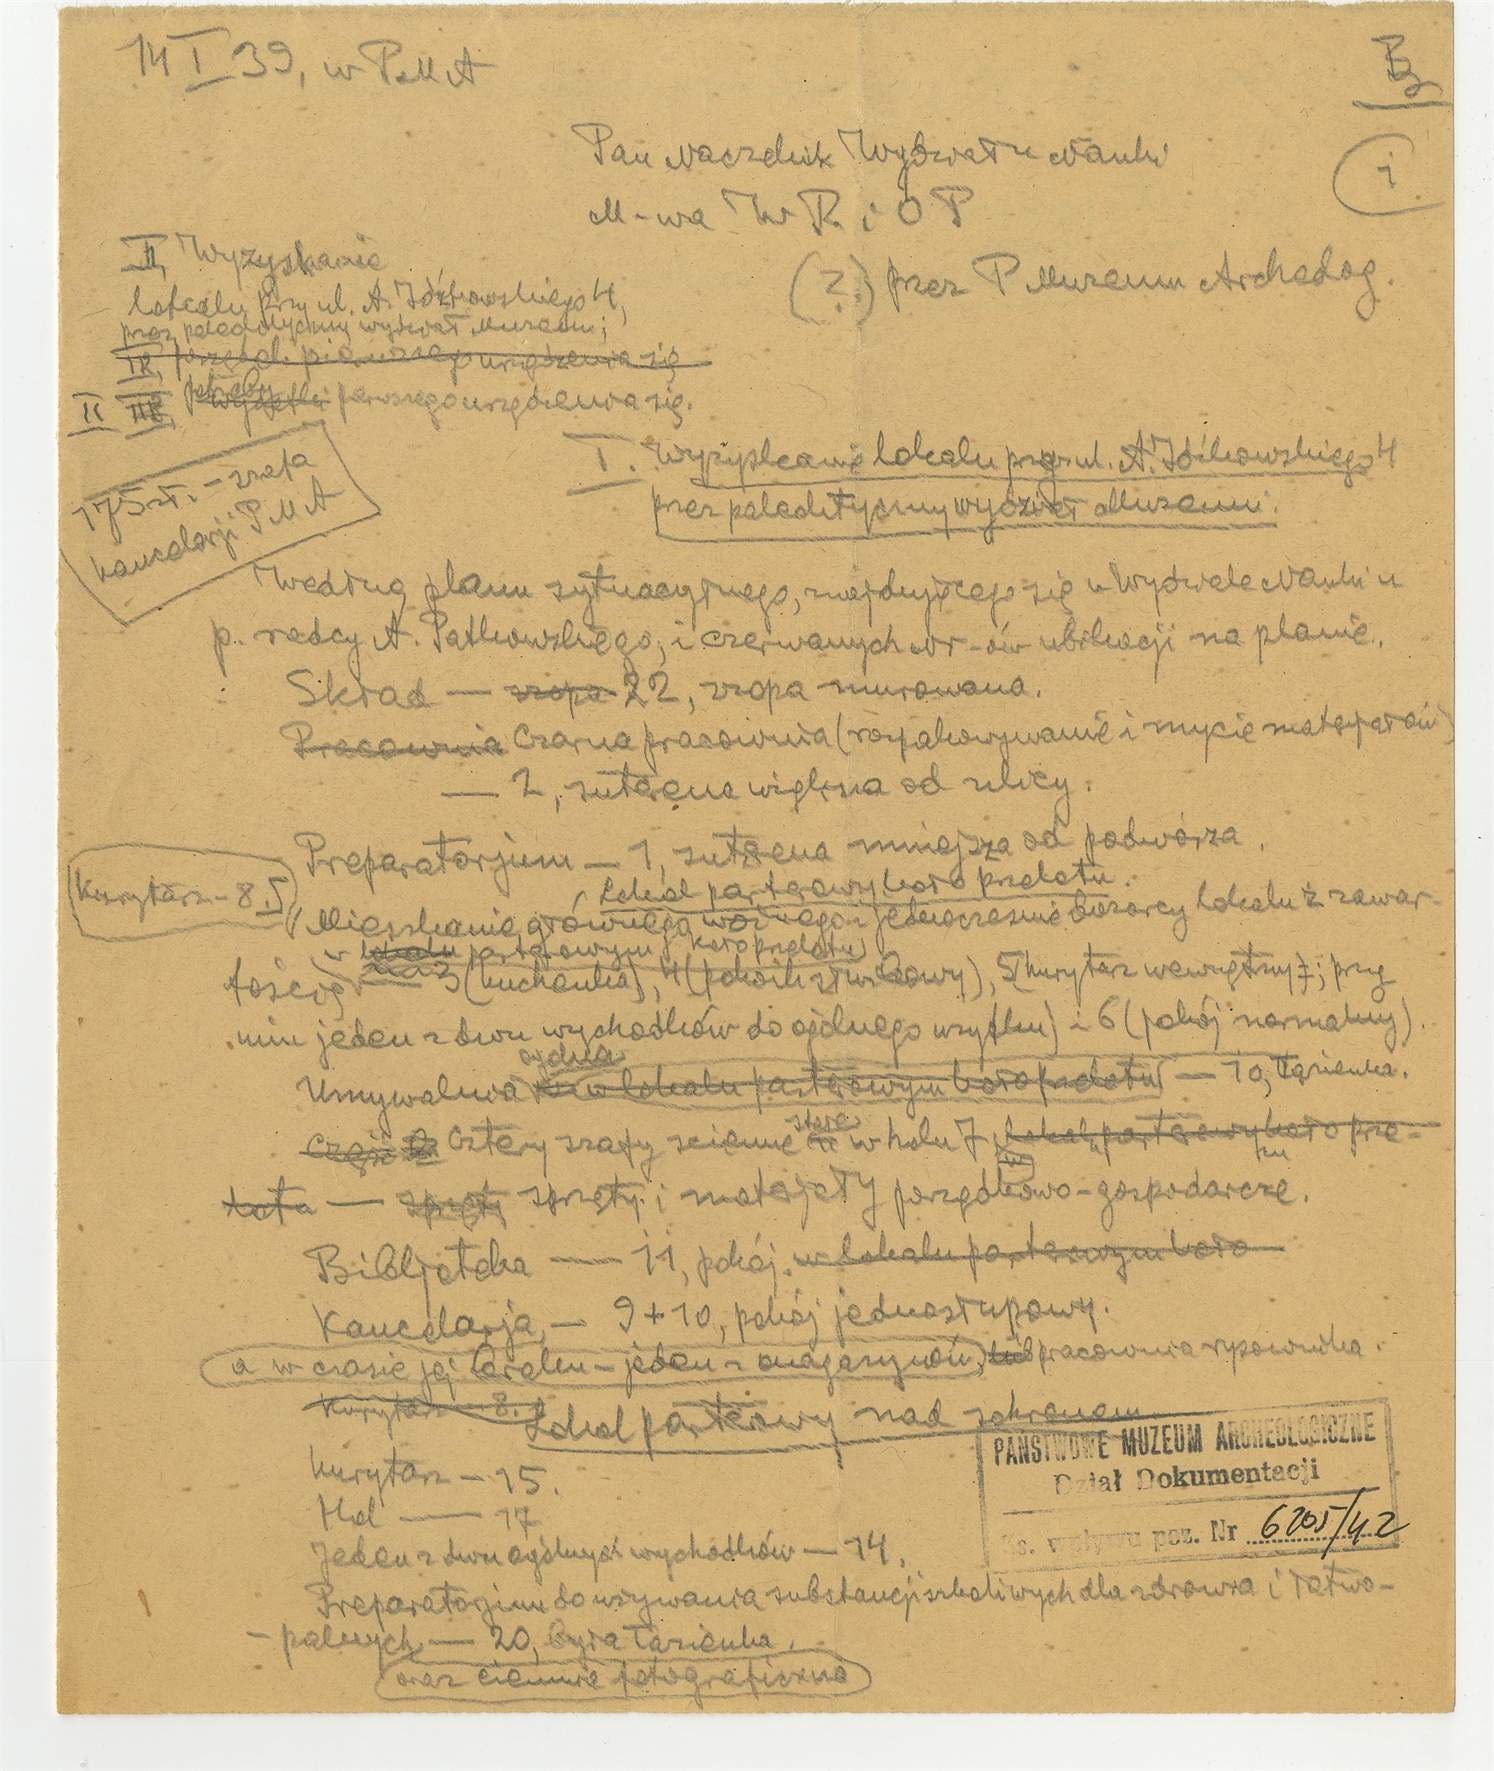 14 I 39, w PMA
B
1
Pan Naczelnik Wydziału Nauki
M-wa W R i O P
(?) przez P Muzeum Archeolog.
II, Wyzyskanie
lokalu przy ul. A. Józikowskiego 4,
przez paleolityczny wydział Muzeum;
II, porządek pierwszego urządzenia się
II III, potrzeby wydatki pierwszego urządzenia się.
175 zł. – szafa
kancelarji PMA
I. Wyzyskanie lokalu przy ul. A. Józikowskiego 4
przez paleolityczny wydział Muzeum.
Według planu sytuacyjnego, znajdującego się w Wydziale Nauki u
p. radcy A. Patkowskiego, i czerwanych nr-ów ubikacji na planie.
Skład — szopa 22, szopa murowana.
Pracownia Czarna pracownia (rozpakowywanie i mycie materjałów)
— 2, suterena większa od ulicy.
Preparatorjum — 1, suterena mniejsza od podwórza.
Lokal parterowy koło przelotu.
Korytarz – 8.
Mieszkanie głównego woźnego i jednocześnie dozorcy lokalu z zawar-
w lokalu parterowym koło przelotu
tością — 3 (kuchenka), 4 (pokoik stołowy), 5 (kurytarz wewnętrzny; przy
nim jeden z dwu wychodków do ogólnego użytku) i 6 (pokój normalny).
ogólna
Umywalnia w lokalu parterowym koło przelotu — 10, łazienka.
stare
Część Cztery szafy ścienne w holu 7, lokal parterowy koło prze-
lotu — sprzęty sprzęty i materjały porządkowo-gospodarcze.
Bibljoteka — 11, pokój. w lokalu parterowym koło
Kancelarja, — 9 + 10, pokój jednosłupowy.
a w czasie jej braku – jeden z magazynów, lub pracownia rysownika.
Kurytarz — 8.
Lokal parterowy nad schronem
Kurytarz — 15.
Hol — 17
Jeden z dwu ogólnych wychodków — 14.
Preparatorjum do używania substancji szkodliwych dla zdrowia i łatwo-
- palnych — 20, była łazienka.
oraz ciemnia fotograficzna
PAŃSTWOWE MUZEUM ARCHEOLOGICZNE
Dział Dokumentacji
Ks. wpływu poz. Nr 6205/42